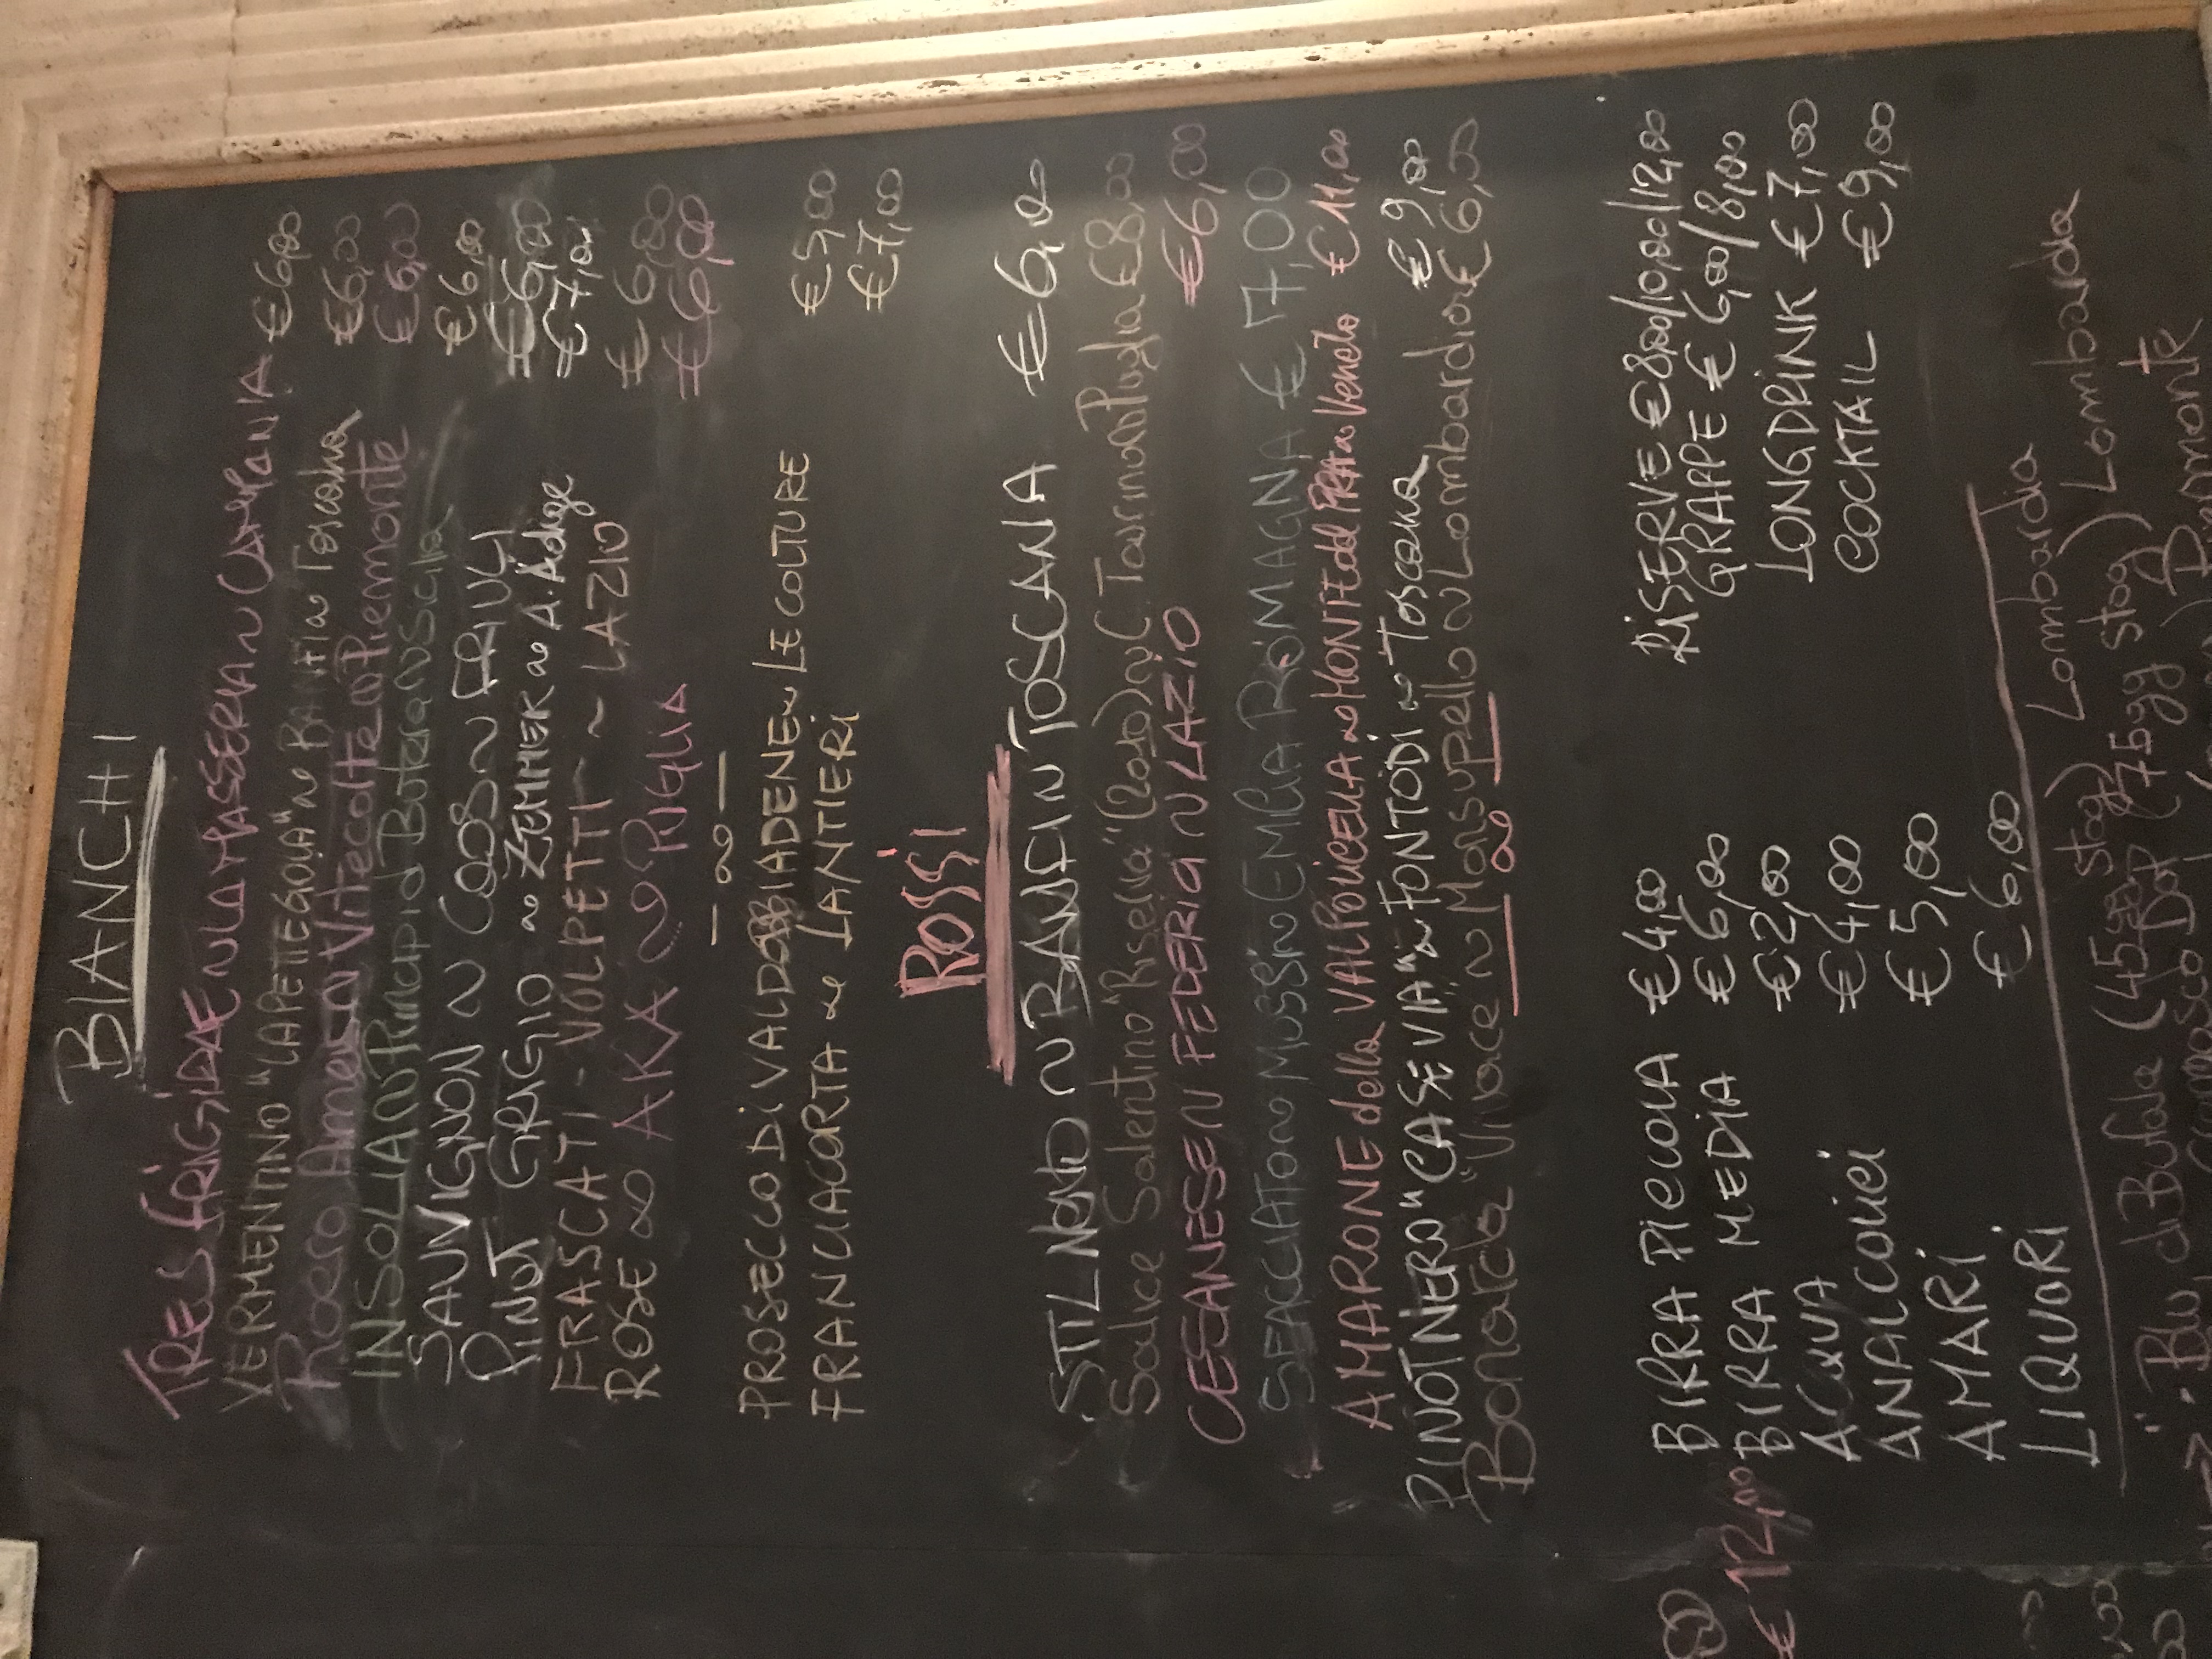 BIANCHI
TRES FRIGIDAE ~ LA MASSERIA ~ CAMPANIA € 6,00
VERMENTINO "LA PETTEGOLA" ~ BANFI ~ Toscana € 6,00
Roero Arneis ~ Vite Colte ~ Piemonte € 6,00
INSOLIA ~ Principi di Butera ~ Sicilia € 6,00
SAUVIGNON ~ ~ FRIULI € 6,00
PINOT GRIGIO ~ ZEMMER ~ A. Adige € 7,00
FRASCATI - VOLPETTI ~ LAZIO € 6,00
ROSE ~ AKA ~ PUGLIA € 6,00
PROSECCO Di VALDOBBIADENE ~ LE COLTURE € 5,00
FRANCIACORTA ~ LANTIERI € 7,00
ROSSI
STIL NOVO ~ BANFI ~ TOSCANA € 6,00
Salice Salentino "Riserva" (2010) ~ C. Taurino ~ Puglia € 8,00
CESANESE ~ FEDERICI ~ LAZIO € 6,00
SFACCIATO ~ ~ EMILIA ROMAGNA € 7,00
AMARONE della VALPOLICELLA ~ MONTE del FRA' ~ Veneto € 11,00
PINOT NERO "CASE VIA" ~ FONTODI ~ Toscana € 9,00
Bonarda "Vivace" ~ Monsupello ~ Lombardia € 6,00
BIRRA PICCOLA € 4,00
BIRRA MEDIA € 6,00
ACQUA € 2,00
ANALCOLICI € 4,00
AMARI € 5,00
LIQUORI € 6,00
RISERVE € 8,00/10,00/12,00
GRAPPE € 6,00/8,00
LONGDRINK € 7,00
COCKTAIL € 9,00
€ 12,00
Lombardia
stag) Lombardia
Blu di Bufala (45gg stag) Lombardia
Dop (75gg stag) Piemonte